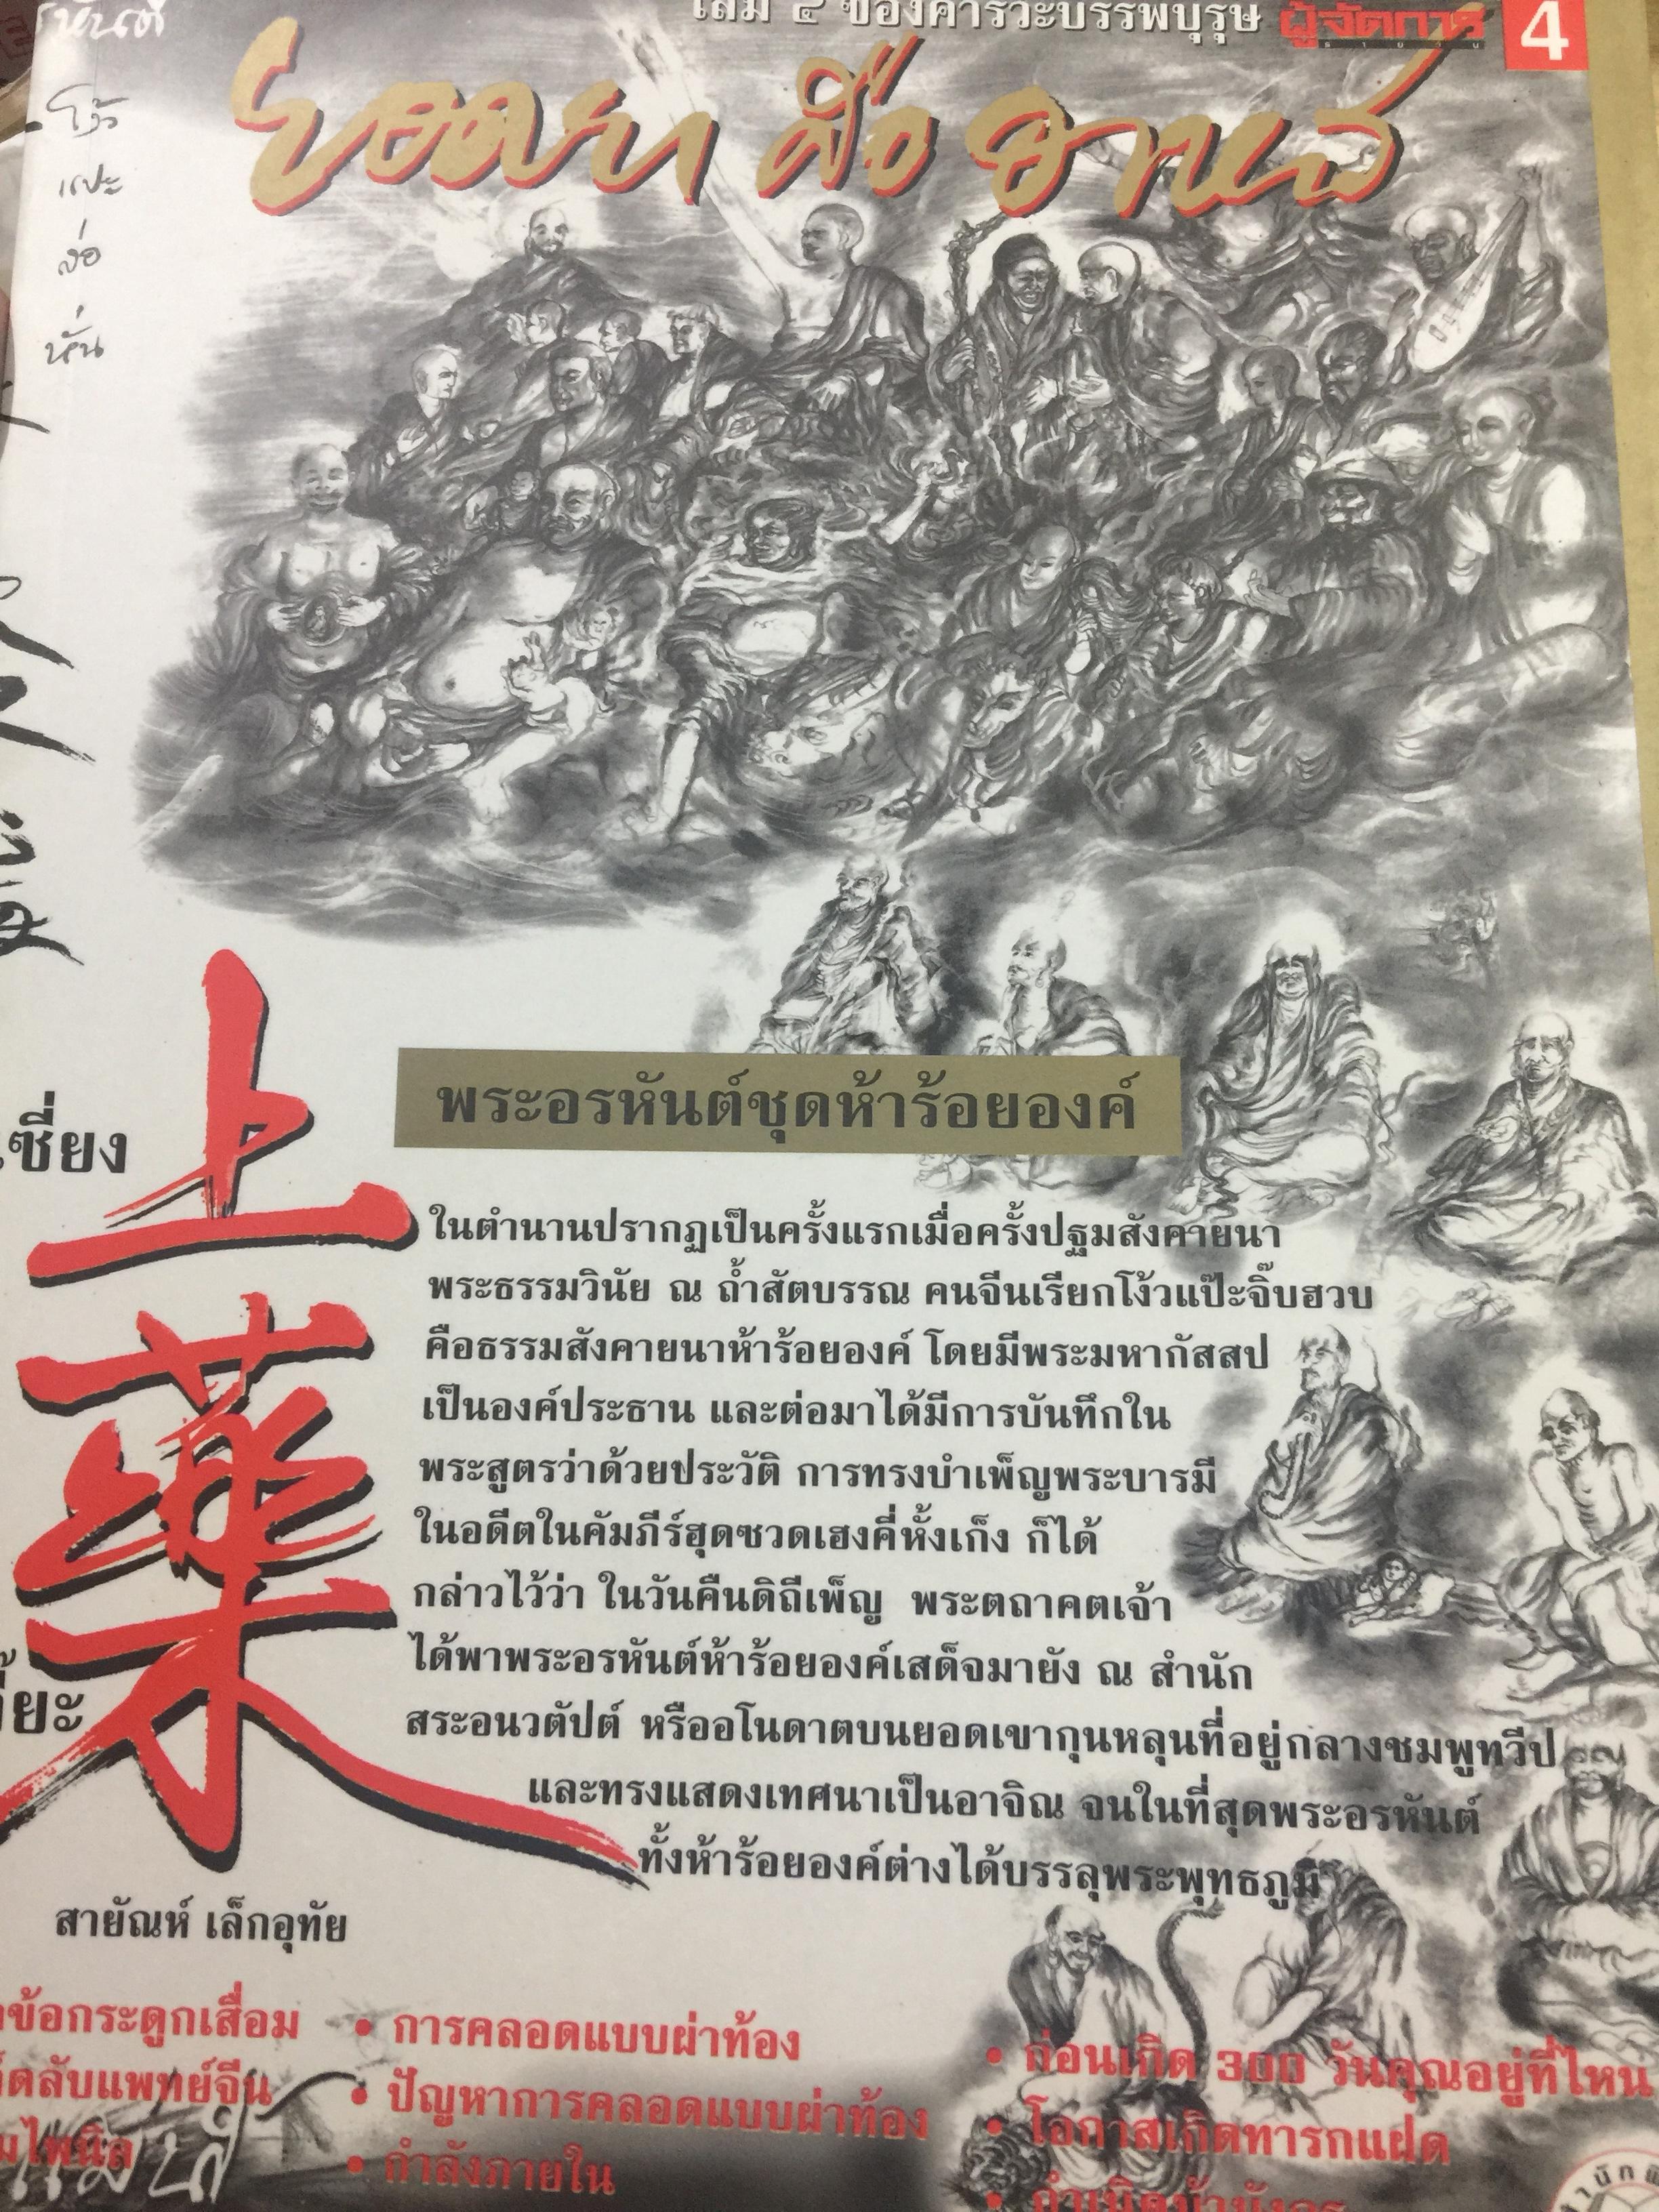 เล่ม ๔ ของคารวะบรรพบุรุษ ผู้จัดการ 4
รายวัน
ยอดยา คือ อาหาร
โง้ว
แปะ
ล่อ
หั่น
พระอรหันต์ชุดห้าร้อยองค์
เซี่ยง
上
藥
ในตำนานปรากฏเป็นครั้งแรกเมื่อครั้งปฐมสังคายนา
พระธรรมวินัย ณ ถ้ำสัตบรรณ คนจีนเรียกโง้วแป๊ะจิ๊บฮวบ
คือธรรมสังคายนาห้าร้อยองค์ โดยมีพระมหากัสสป
เป็นองค์ประธาน และต่อมาได้มีการบันทึกใน
พระสูตรว่าด้วยประวัติ การทรงบำเพ็ญพระบารมี
ในอดีตในคัมภีร์ฮุดซวดเฮงคี่หั้งเก็ง ก็ได้
กล่าวไว้ว่า ในวันคืนดิถีเพ็ญ พระตถาคตเจ้า
ได้พาพระอรหันต์ห้าร้อยองค์เสด็จมายัง ณ สำนัก
สระอนวตัปต์ หรืออโนดาตบนยอดเขากุนหลุนที่อยู่กลางชมพูทวีป
และทรงแสดงเทศนาเป็นอาจิณ จนในที่สุดพระอรหันต์
ทั้งห้าร้อยองค์ต่างได้บรรลุพระพุทธภูมิ
สายัณห์ เล็กอุทัย
ข้อกระดูกเสื่อม
ลับแพทย์จีน
• การคลอดแบบผ่าท้อง
• ปัญหาการคลอดแบบผ่าท้อง
• กำลังภายใน
• ก่อนเกิด 300 วันคุณอยู่ที่ไหน
• โอกาสเกิดทารกแฝด